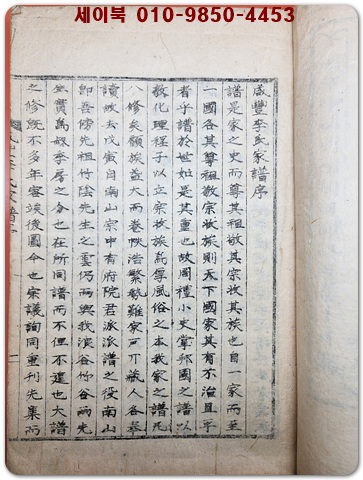 세이북 010-9850-4453
咸豐李氏家譜序
譜是家之史而尊其祖敬其宗收其族也自一家而至
一國各其尊祖敬宗收族則天下國家其有不治且乎
者乎譜於世如是其重也故周禮小史掌邦國之譜以
敎化理程子以立宗收族爲厚風俗之本我家之譜凡
八修矣顧族益大而卷帙浩繁勢難家藏人各
讀故去戊寅自南山宗中有府院君派派譜之役南山
卽吾傍先祖竹陰先生之 仍而與我 谷竹谷兩先
生實爲 季房之分也在所同譜而不但不遑也大譜
之修旣不多年 竢後圖今也宗議詢同重刊先集而